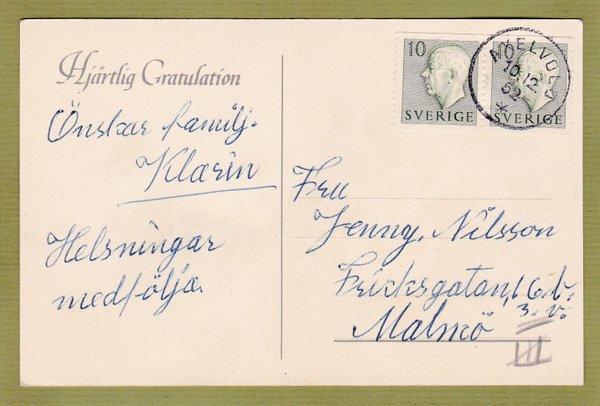 Hjärtlig Gratulation
Önskar familj.
Klarin
Helsningar
medfölja.
10
SVERIGE
10
SVERIGE
10.12.
52
Fru
Jenny, Nilsson
16.b.
3. v.
Malmö